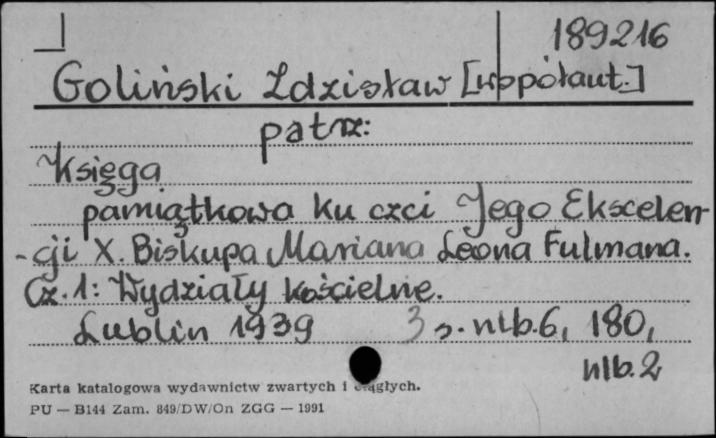 189216
Goliński Zdzisław [współaut.]
patrz:
Księga
pamiątkowa ku czci Jego Ekscelen-
-cji X. Biskupa Mariana Leona Fulmana.
Cz. 1: Wydziały kościelne.
Lublin 1939 3 s. nlb. 6, 180,
nlb. 2
Karta katalogowa wydawnictw zwartych i ciągłych.
PU — B144 Zam. 849/DW/On ZGG — 1991